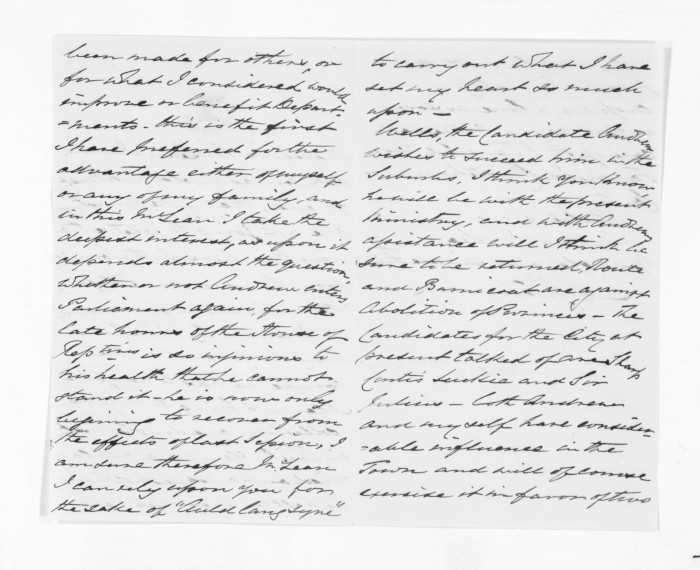 been made for others, or
for what I considered would
improve or benefit Depart-
=ments - this is the first
I have preferred for the
advantage either of myself
or any of my family, and
in this McLean I take the
deepest interest, as upon it
depends almost the question
whether or not Andrew enters
Parliament again, for the
late hours of the House of
Reptives is so injurious to
his health that he cannot
stand it - he is now only
begining to recover from
the effects of last Session, I
am sure therefore McLean
I can rely upon you for
the sake of "Auld Lang Syne"
to carry out what I have
set my heart so much
upon -
Wells, the Candidate Andrew
wishes to succeed him in the
Suburbs, I think you know
he will be with the present
Ministry, and with Andrews
assistance will I think be
sure to be returned,
and are against
Abolition of Provinces - The
Candidates for the City at
present talked of are Sharp
Curtis Luckie and Sir
Julius - both Andrew
and myself have consider-
=able influence in the
Town and will of course
exercise it in favor of two